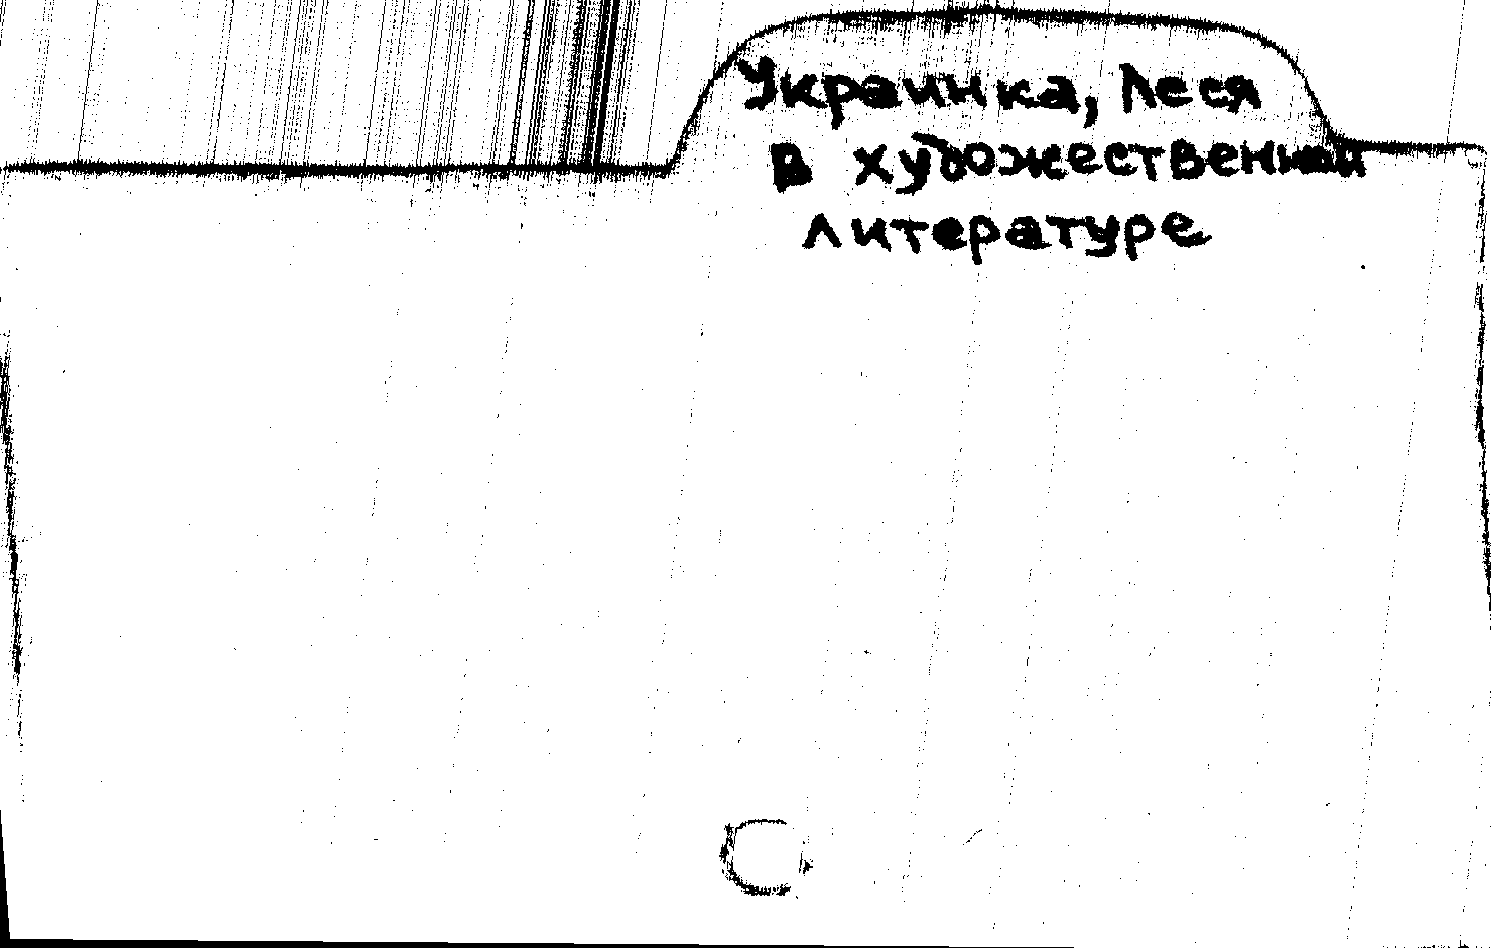 Украинка, Леся
в художественной
литературе